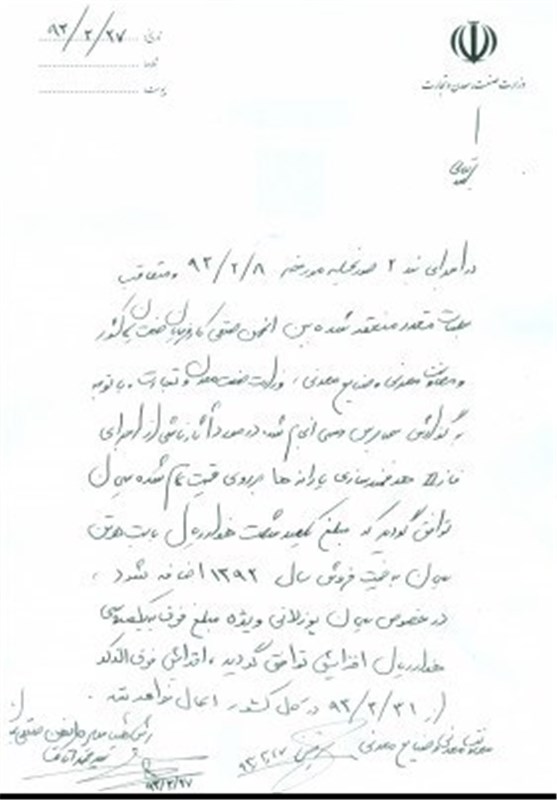 تاریخ: ۹۳/۲/۲۷
شماره:
پیوست:
وزارت صنعت، معدن و تجارت
بسمه تعالی
در اجرای بند ۲ صورتجلسه مورخه ۹۳/۲/۸ و متعاقب
جلسات متعدد منعقد شده بین انجمن صنفی کارفرمایان صنعت سیمان کشور
و معاونت معدنی و صنایع معدنی، وزارت صنعت معدن و تجارت، و با توجه
به گزارش حسابرس رسمی انجام شده در مورد آثار ناشی از اجرای
فاز II هدفمندسازی یارانه ها بر روی قیمت تمام شده سیمان
توافق گردید که مبلغ یکصد و شصت هزار ریال بابت هر تن
سیمان به قیمت فروش سال ۱۳۹۲ اضافه شود،
در خصوص سیمان پوزولانی ویژه مبلغ فوق یکصد و سی
هزار ریال افزایش توافق گردید، افزایش فوق الذکر
از ۹۳/۲/۳۱ در کل کشور اعمال خواهد شد.
معاونت معدنی و صنایع معدنی
۹۳/۲/۲۷
رئیس هیئت مدیره انجمن صنفی
۹۳/۲/۲۷